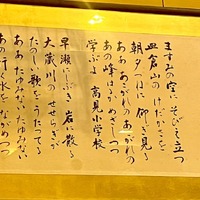 ますみの空に そびえ立つ
皿倉山の けだかさを
朝夕つねに 仰ぎ見る
ああ あこがれの あこがれの
あの峰はるか めざしつつ
学ぶよ 高見小学校
早瀬にしぶき 岩に散る
大蔵川の せせらぎが
たのしい歌を うたってる
ああ たゆみない たゆみない
あの行く水を ながめつつ